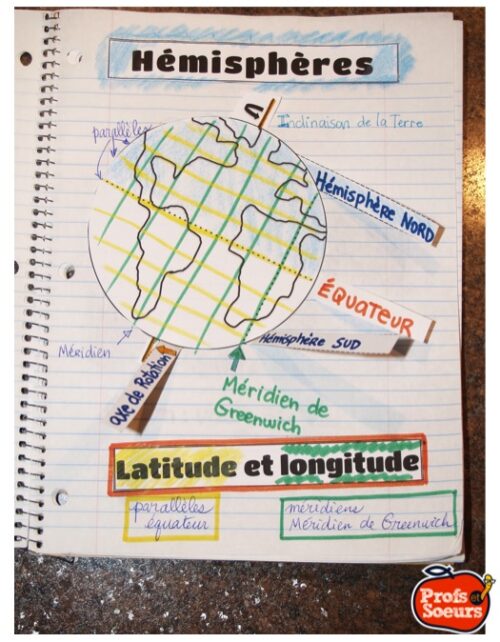 Hémisphères
Inclinaison de la Terre
parallèles
Hémisphère NORD
ÉQUATEUR
Hémisphère SUD
Méridien
axe de Rotation
Méridien de
Greenwich
Latitude et longitude
parallèles
équateur
méridiens
Méridien de Greenwich
Profs et
Soeurs